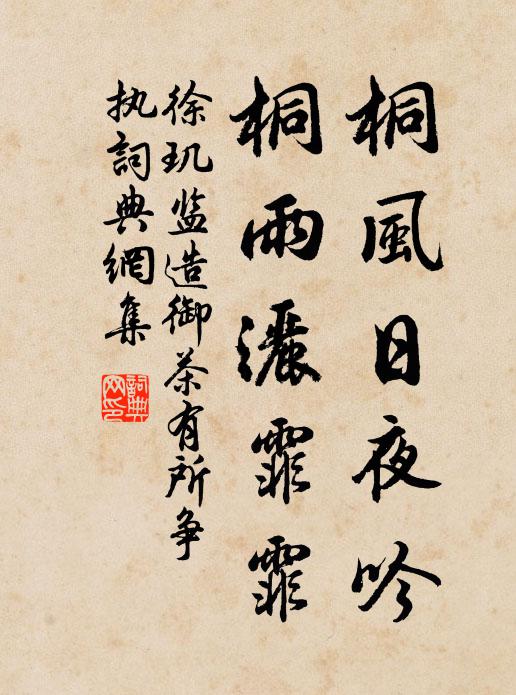 桐風日夜吟
桐雨灑霏霏
徐玑监造御茶有所争
执詞典網集
詞典网印